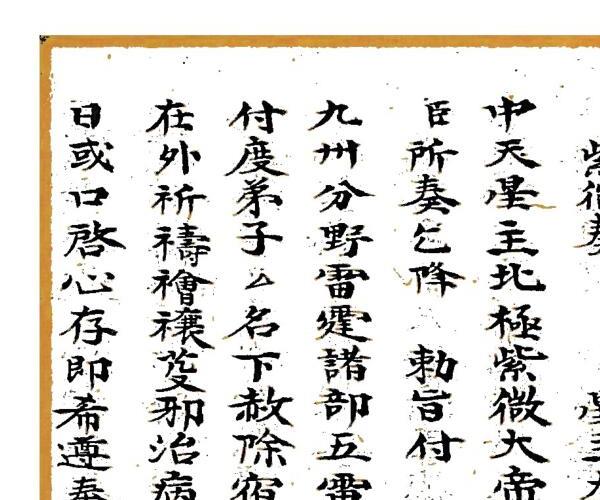 紫微奏
中天星主北極紫微大帝
臣所奏乞降　勅旨付
九州分野雷霆諸部五雷
付度弟子厶名下赦除宿
在外祈禱禬禳芟邪治病
日或口啓心存即希遵奉